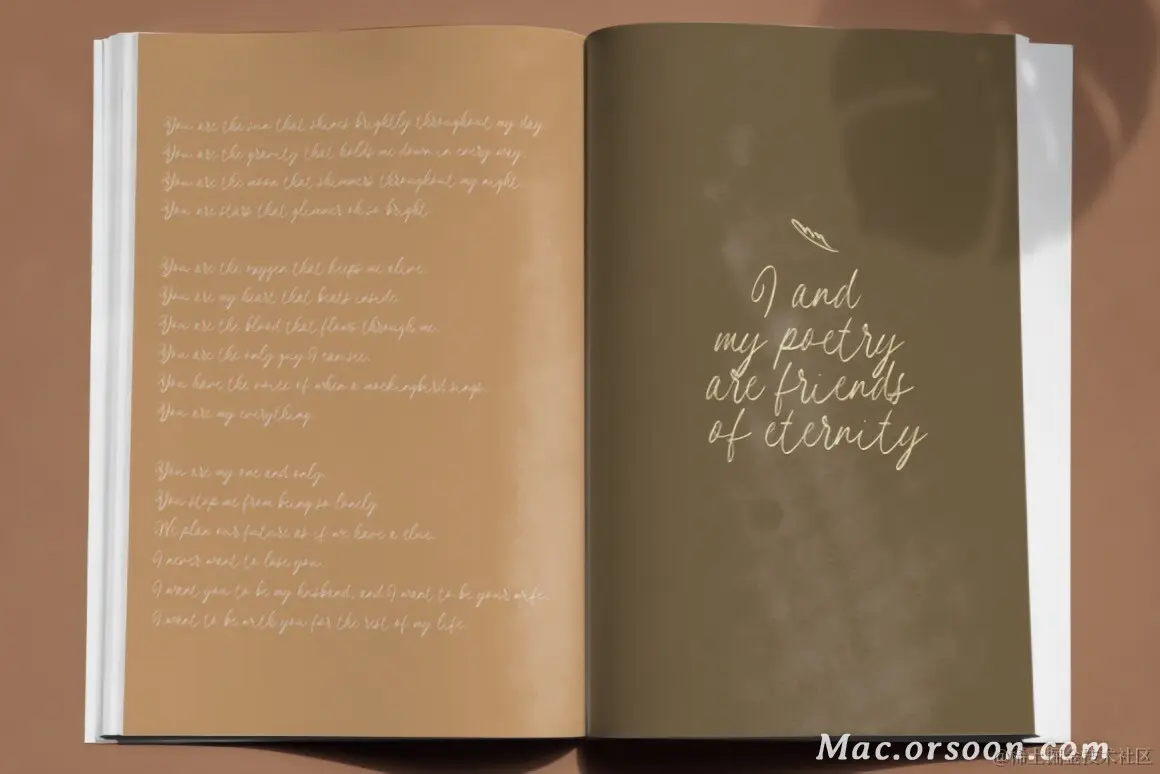 You are the sun that shines brightly throughout my day.
You are the gravity that holds me down in every way.
You are the moon that shimmers throughout my night.
You are stars that glimmer oh so bright.
You are the oxygen that keeps me alive.
You are my heart that beats inside.
You are the blood that flows through me.
You are the only guy I can see.
You have the voice of when a mockingbird sings.
You are my everything.
You are my one and only.
You stop me from being so lonely.
We plan our future as if we have a clue.
I never want to lose you.
I want you to be my husband, and I want to be your wife.
I want to be with you for the rest of my life.
I and
my poetry
are friends
of eternity
Mac.orsoon.com
@稀土掘金技术社区